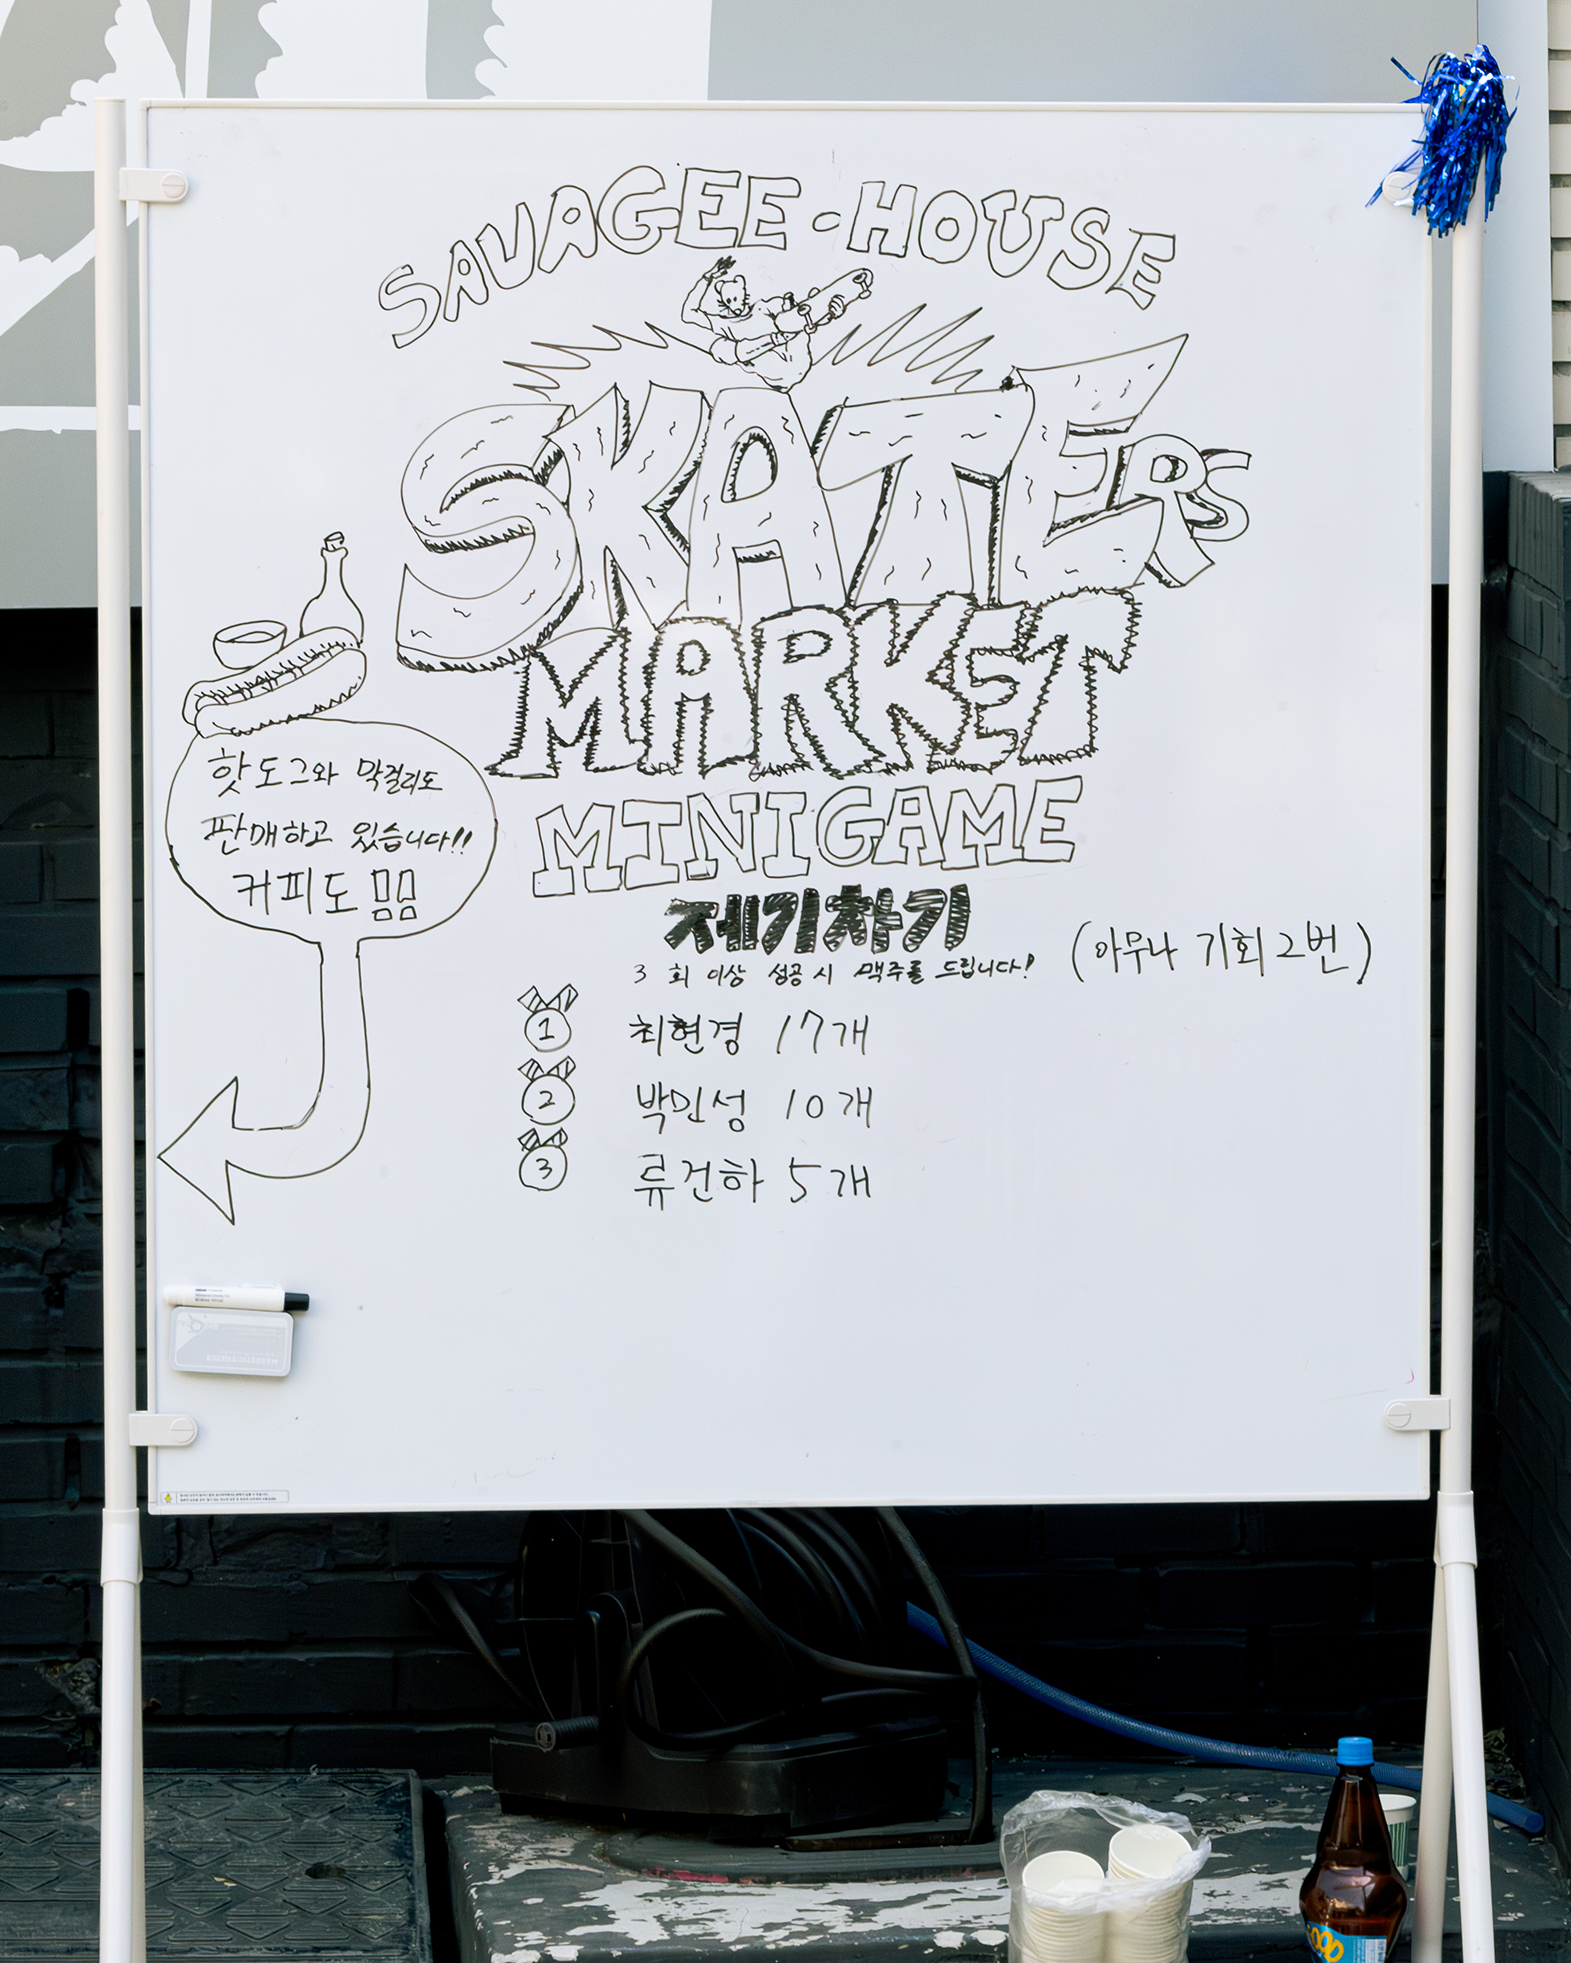 SAVAGEE-HOUSE
SKATERS
MARKET
MINIGAME
제기차기
3 회 이상 성공 시 맥주를 드립니다! (아무나 기회 2번)
1 최현경 17개
2 박민성 10개
3 류건하 5개
핫도그와 막걸리도
판매하고 있습니다!!
커피도 ㅁㅁ